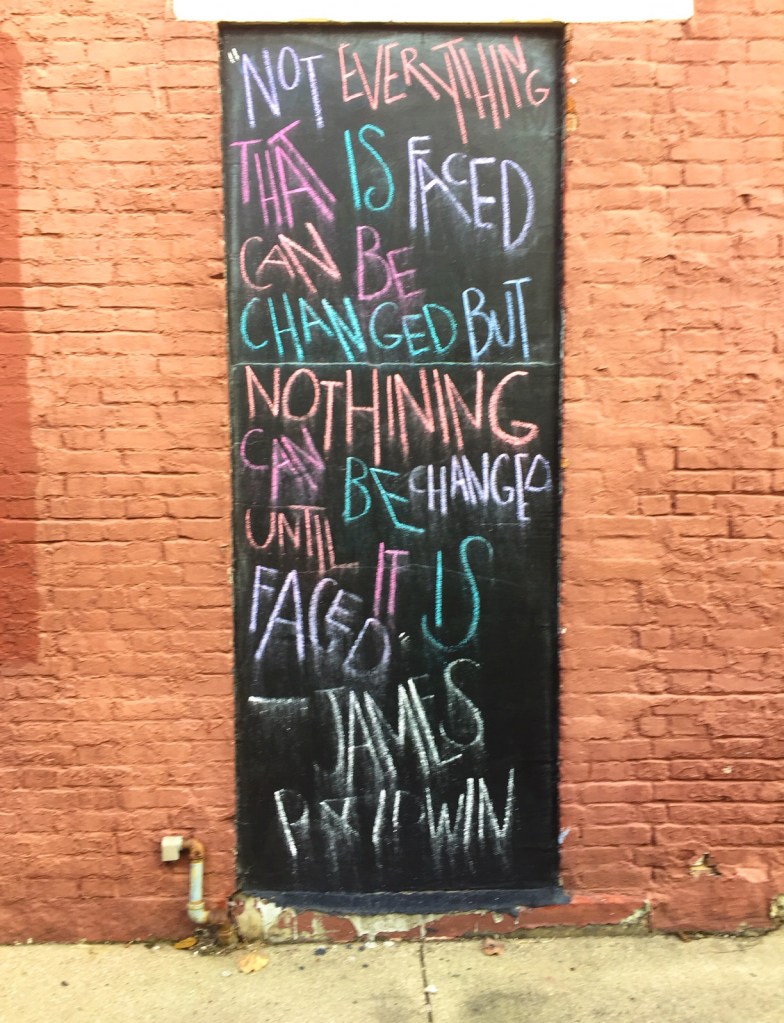 "NOT EVERYTHING
THAT IS FACED
CAN BE
CHANGED BUT
NOTHINING
CAN BE CHANGED
UNTIL IT IS
FACED"
— JAMES
BALDWIN